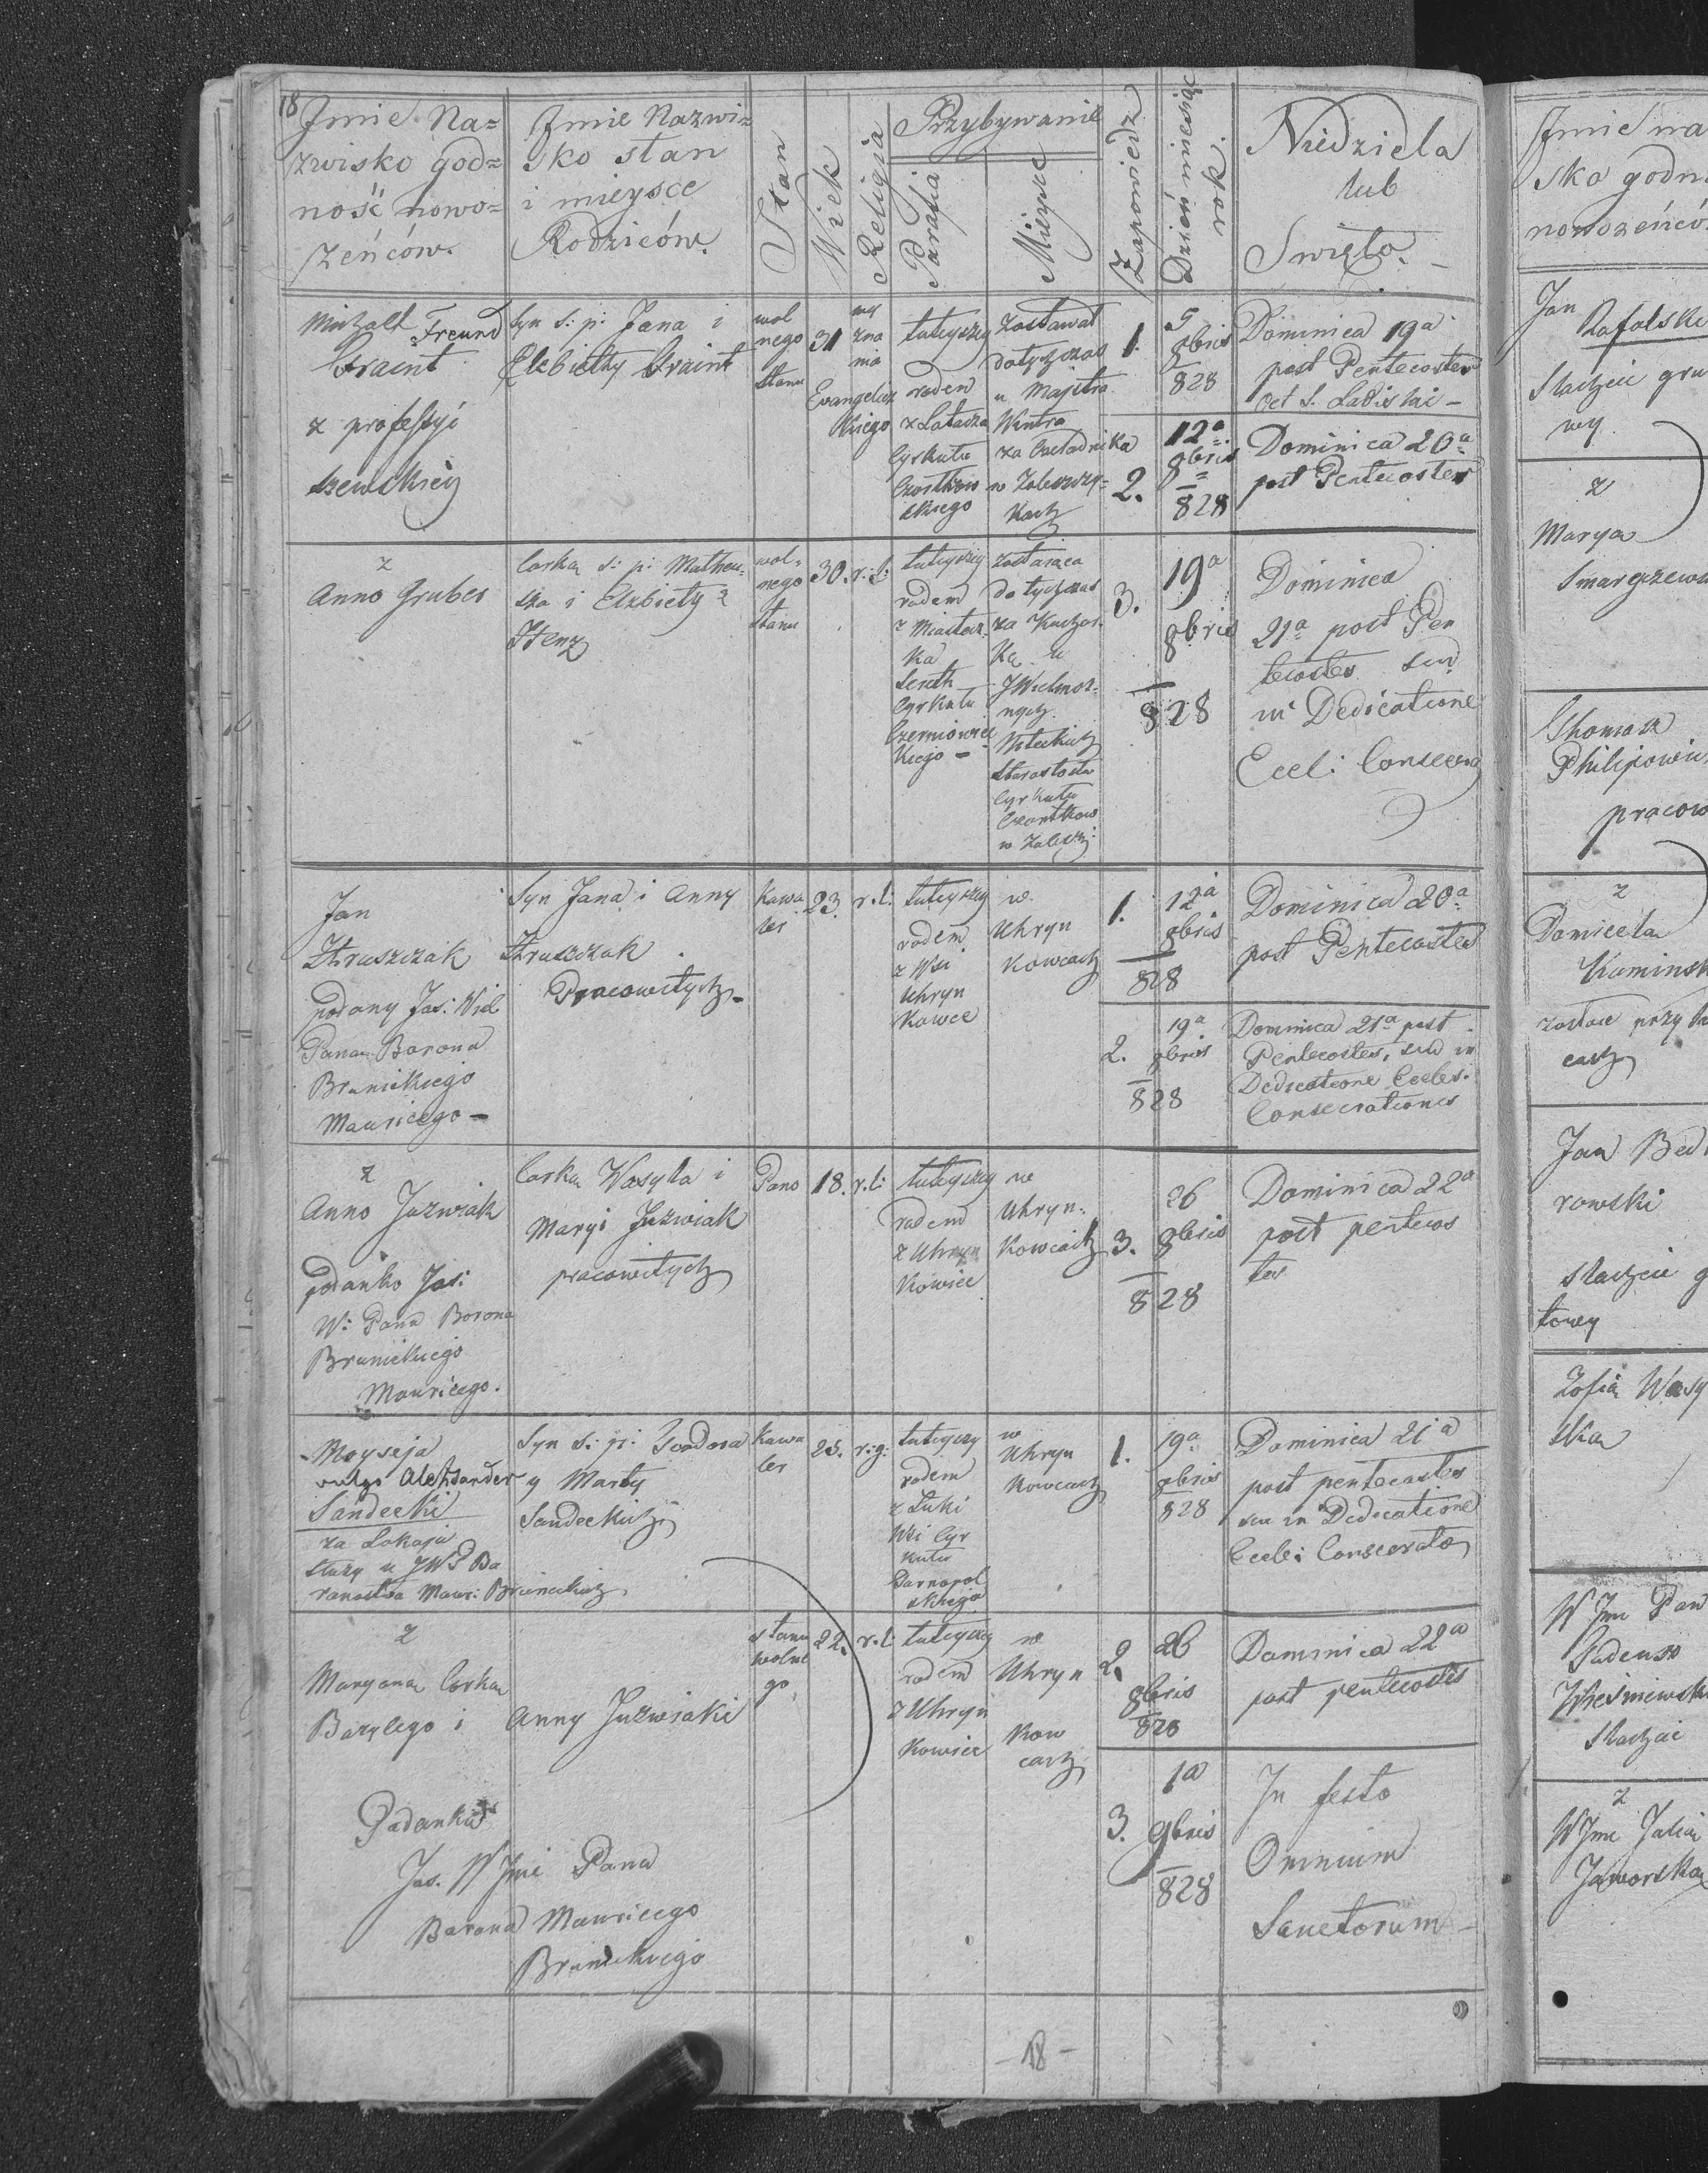 18
Jmie Na=
zwisko god=
ność nowo=
żeńców.
Jmie Nazwi=
sko stan
i mieysce
Rodziców.
Stan
Wiek
Religia
Przybywanie
Parafia
Mieysce
Zapowiedz
Dzień miesiąc
rok.
Niedziela
lub
Swięto.
Michall Freund
z professyi
szewskiey
Syn s: p: Jana i
Elżbietty
wol
nego
stanu
31
wy
zna
nia
Evangelic
kiego
tuteyszey
rodem
cyrkułu
Czortkow
skiego
zostawał
dotychczas
u Majstra
Wintra
za Czeladnika
w Zaleszczy=
kach
1.
5
8bris
828
Dominica 19a
post Pentecostes
Oct S. Ladislai -
2.
12a
8bris
828
Dominica 20a
post Pentecostes
z
Anno Gruber
Corka s: p: Matheu=
sza i Elżbiety z
Henz
wol=
nego
stanu
30.
r: l:
tuteyszey
rodem
z Miastecz=
ka
Sereth
Cyrkułu
Czerniowiec
kiego -
zostaiąca
dotychczas
za Kuchar=
kę u
JWielmoż=
nych
Starostow
Cyrkułu
Czortkow
w Zalesz:
3.
19a
8bris
828
Dominica
21a post Pen
tecostes seu
in Dedicatione
Eccl: Consecra
Jan
Struszczak
podany Jaś: Wiel
Pana Barona
Brunickiego
Mauricego -
Syn Jana i Anny
Struszczak
Pracowitych -
Kawa
ler
23.
r. l:
tuteyszey
rodem
z Wsi
Uhryn
kowce
w
Uhryn
kowcach
1.
12a
8bris
828
Dominica 20a
post Pentecostes
2.
19a
8bris
828
Dominica 21a post
Pentecostes, seu in
Dedicatione Eccles:
Consecrationis
z
Anno Juzwiak
podanko Jaś:
W: Pana Borona
Brunickiego
Mauricego.
Corka Wasyla i
Maryi Juzwiak
pracowitych
Pano
18.
r. l:
tuteyszey
rodem
z Uhryn
kowiec
w
Uhryn=
kowcach
3.
26
8bris
828
Dominica 22a
post pentecos
tes
Moyseja
vulgo Aleksander
Sandecki
za Lokaja
służy u JWP Ba
ronostwa Maur: Brunickich
Syn s: p:
y Marty
Sandeckich
Kawa
ler
25.
r. g:
tuteyszy
rodem
z Łuki
Wsi Cyr
kułu
Tarnopol
skiego
w
Uhryn
kowcach
1.
19a
8bris
828
Dominica 21a
post pentecostes
seu in Dedicatione
Eccle: Consecrato
z
Maryana Corka
Bazylego i Anny Juzwiaki
Podanka
Jaś. W Jmi Pana
Barona Mauricego
Brunickiego
stanu
wolne
go
22.
r. l:
tuteyszey
rodem
z Uhryn
kowiec
w
Uhryn
kow
cach
2.
26
8bris
828
Dominica 22a
post pentecostes
3.
1a
9bris
828
In festo
Omnium
Sanctorum -
- 18 -
Jmie na
sko godn
nowożeńców
Jan
Rafalski
Slachcic gru
wy
z
Marya
Smarzewsk
Thomasz
Philipowicz
pracow
z
Domicela
Kaminsk
zostaie przy
cach
Jan Bed
rowski
slachcic g
towy
Zofia Wasy
ska
W Jmi Pan
Tadeusz
Wiśniewski
Slachcic
z
W Jmi Julia
Jaworska